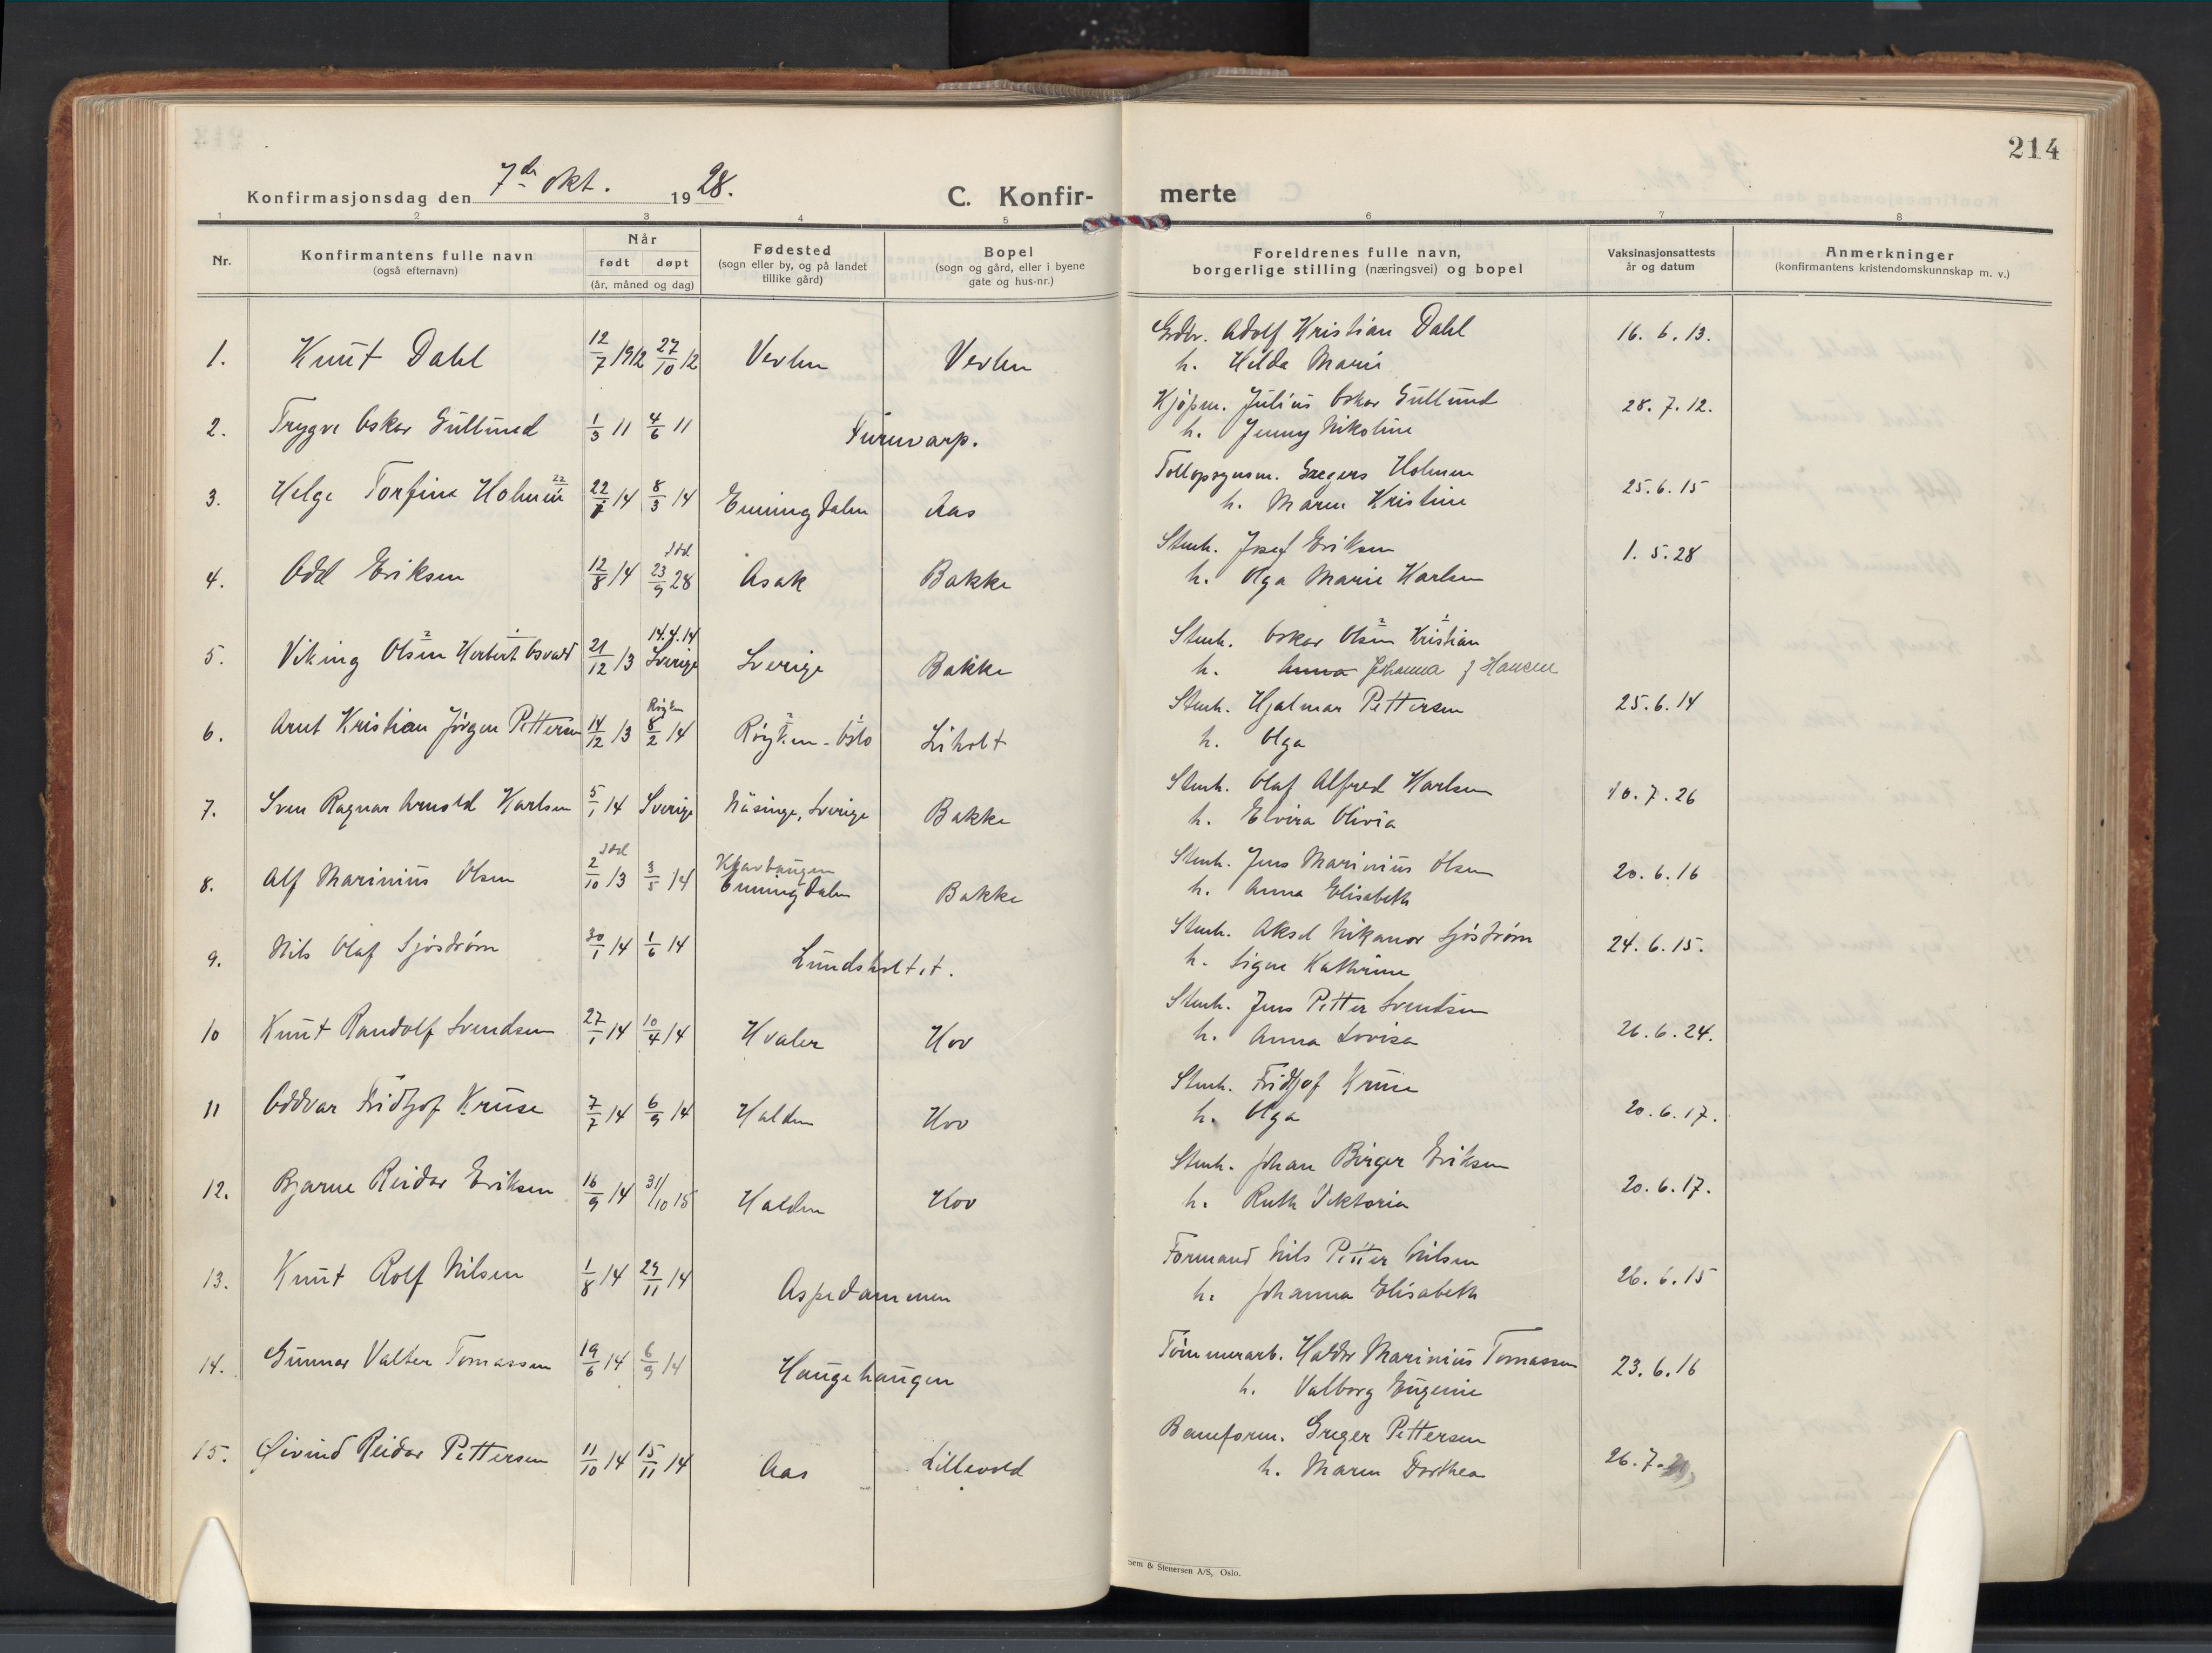 214
Konfirmasjonsdag den 7de okt. 1928.
C. Konfirmerte
1 2 3 4 5 6 7 8
Nr.
Konfirmantens fulle navn
(også efternavn)
Når
født døpt
(år, måned og dag)
Fødested
(sogn eller by, og på landet
tillike gård)
Bopel
(sogn og gård, eller i byene
gate og hus-nr.)
Foreldrenes fulle navn,
borgerlige stilling (næringsvei) og bopel
Vaksinasjonsattests
år og datum
Anmerkninger
(konfirmantens kristendomskunnskap m. v.)
Grdbr. Adolf Kristian Dahl
1. Knut Dahl 12/7 1912 27/10 12 Vevlen Vevlen 16. 6. 13.
h. Hilda Marie
Kjøpm. Julius Oskar Gullund
2. Trygve Oskar Gullund 1/3 11 4/6 11 Furuvarp. 28. 7. 12.
h. Jenny Nikoline
Tollopsynsm. Gregers Holmen
3. Helge Torfinn Holmen 22/1 14 8/3 14 Enningdalen Aas 25. 6. 15
h. Maren Kristine
Stenh. Josef Eriksen
4. Odd Eriksen 12/8 14 23/9 28 Asak Bakke 1. 5. 28
h. Olga Marie Karlsen
Stenh. Oskar Olsen Kristian
14.4.14
5. Viking Olsen Herbert Osvald 21/12 13 Sverige Sverige Bakke
h. Anna Johanna f Hansen
Stenh. Hjalmar Pettersen
Røyken
6. Arnt Kristian Jørgen Pettersen 14/12 13 8/2 14 Røyken - Oslo Liholt 25. 6. 14
h. Olga
Stenh. Olaf Alfred Karlsen
7. Sven Ragnar Arnold Karlsen 5/1 14 Sverige Näsinge, Sverige Bakke 10. 7. 26
h. Elvira Olivia
Stenh. Jens Marinius Olsen
8. Alf Marinius Olsen 2/10 13 3/5 14 Enningdalen Bakke 20. 6. 16
h. Anna Elisabeth
Stenh. Aksel Nikanor Sjöström
9. Nils Olaf Sjöström 30/1 14 1/6 14 Lundsholtet. 24. 6. 15.
h. Signe Kathrine
Stenh. Jens Petter Svendsen
10 Knut Randolf Svendsen 27/1 14 10/4 14 Hvaler Hov 26. 6. 24.
h. Anna Lovisa
Stenh. Fridtjof Kruse
11 Oddvar Fridtjof Kruse 7/7 14 6/9 14 Halden Hov 20. 6. 17.
h. Olga
Stenh. Johan Birger Eriksen
12. Bjarne Reidar Eriksen 16/9 14 31/10 15 Halden Hov 20. 6. 17.
h. Ruth Viktoria
Formand Nils Petter Nilsen
13. Knut Rolf Nilsen 1/8 14 29/11 14 Aspedammen 26. 6. 15
h. Johanna Elisabeth
Tømmerarb. Haldor Marinius Tomassen
14. Gunnar Valter Tomassen 19/6 14 6/9 14 Haugehaugen 23. 6. 16
h. Valborg Eugenie
Baneform. Greger Pettersen
15. Øivind Reidar Pettersen 11/10 14 15/11 14 Aas Lillevold 26. 7.
h. Maren Dorthea
Sem & Stenersen A/S, Oslo.